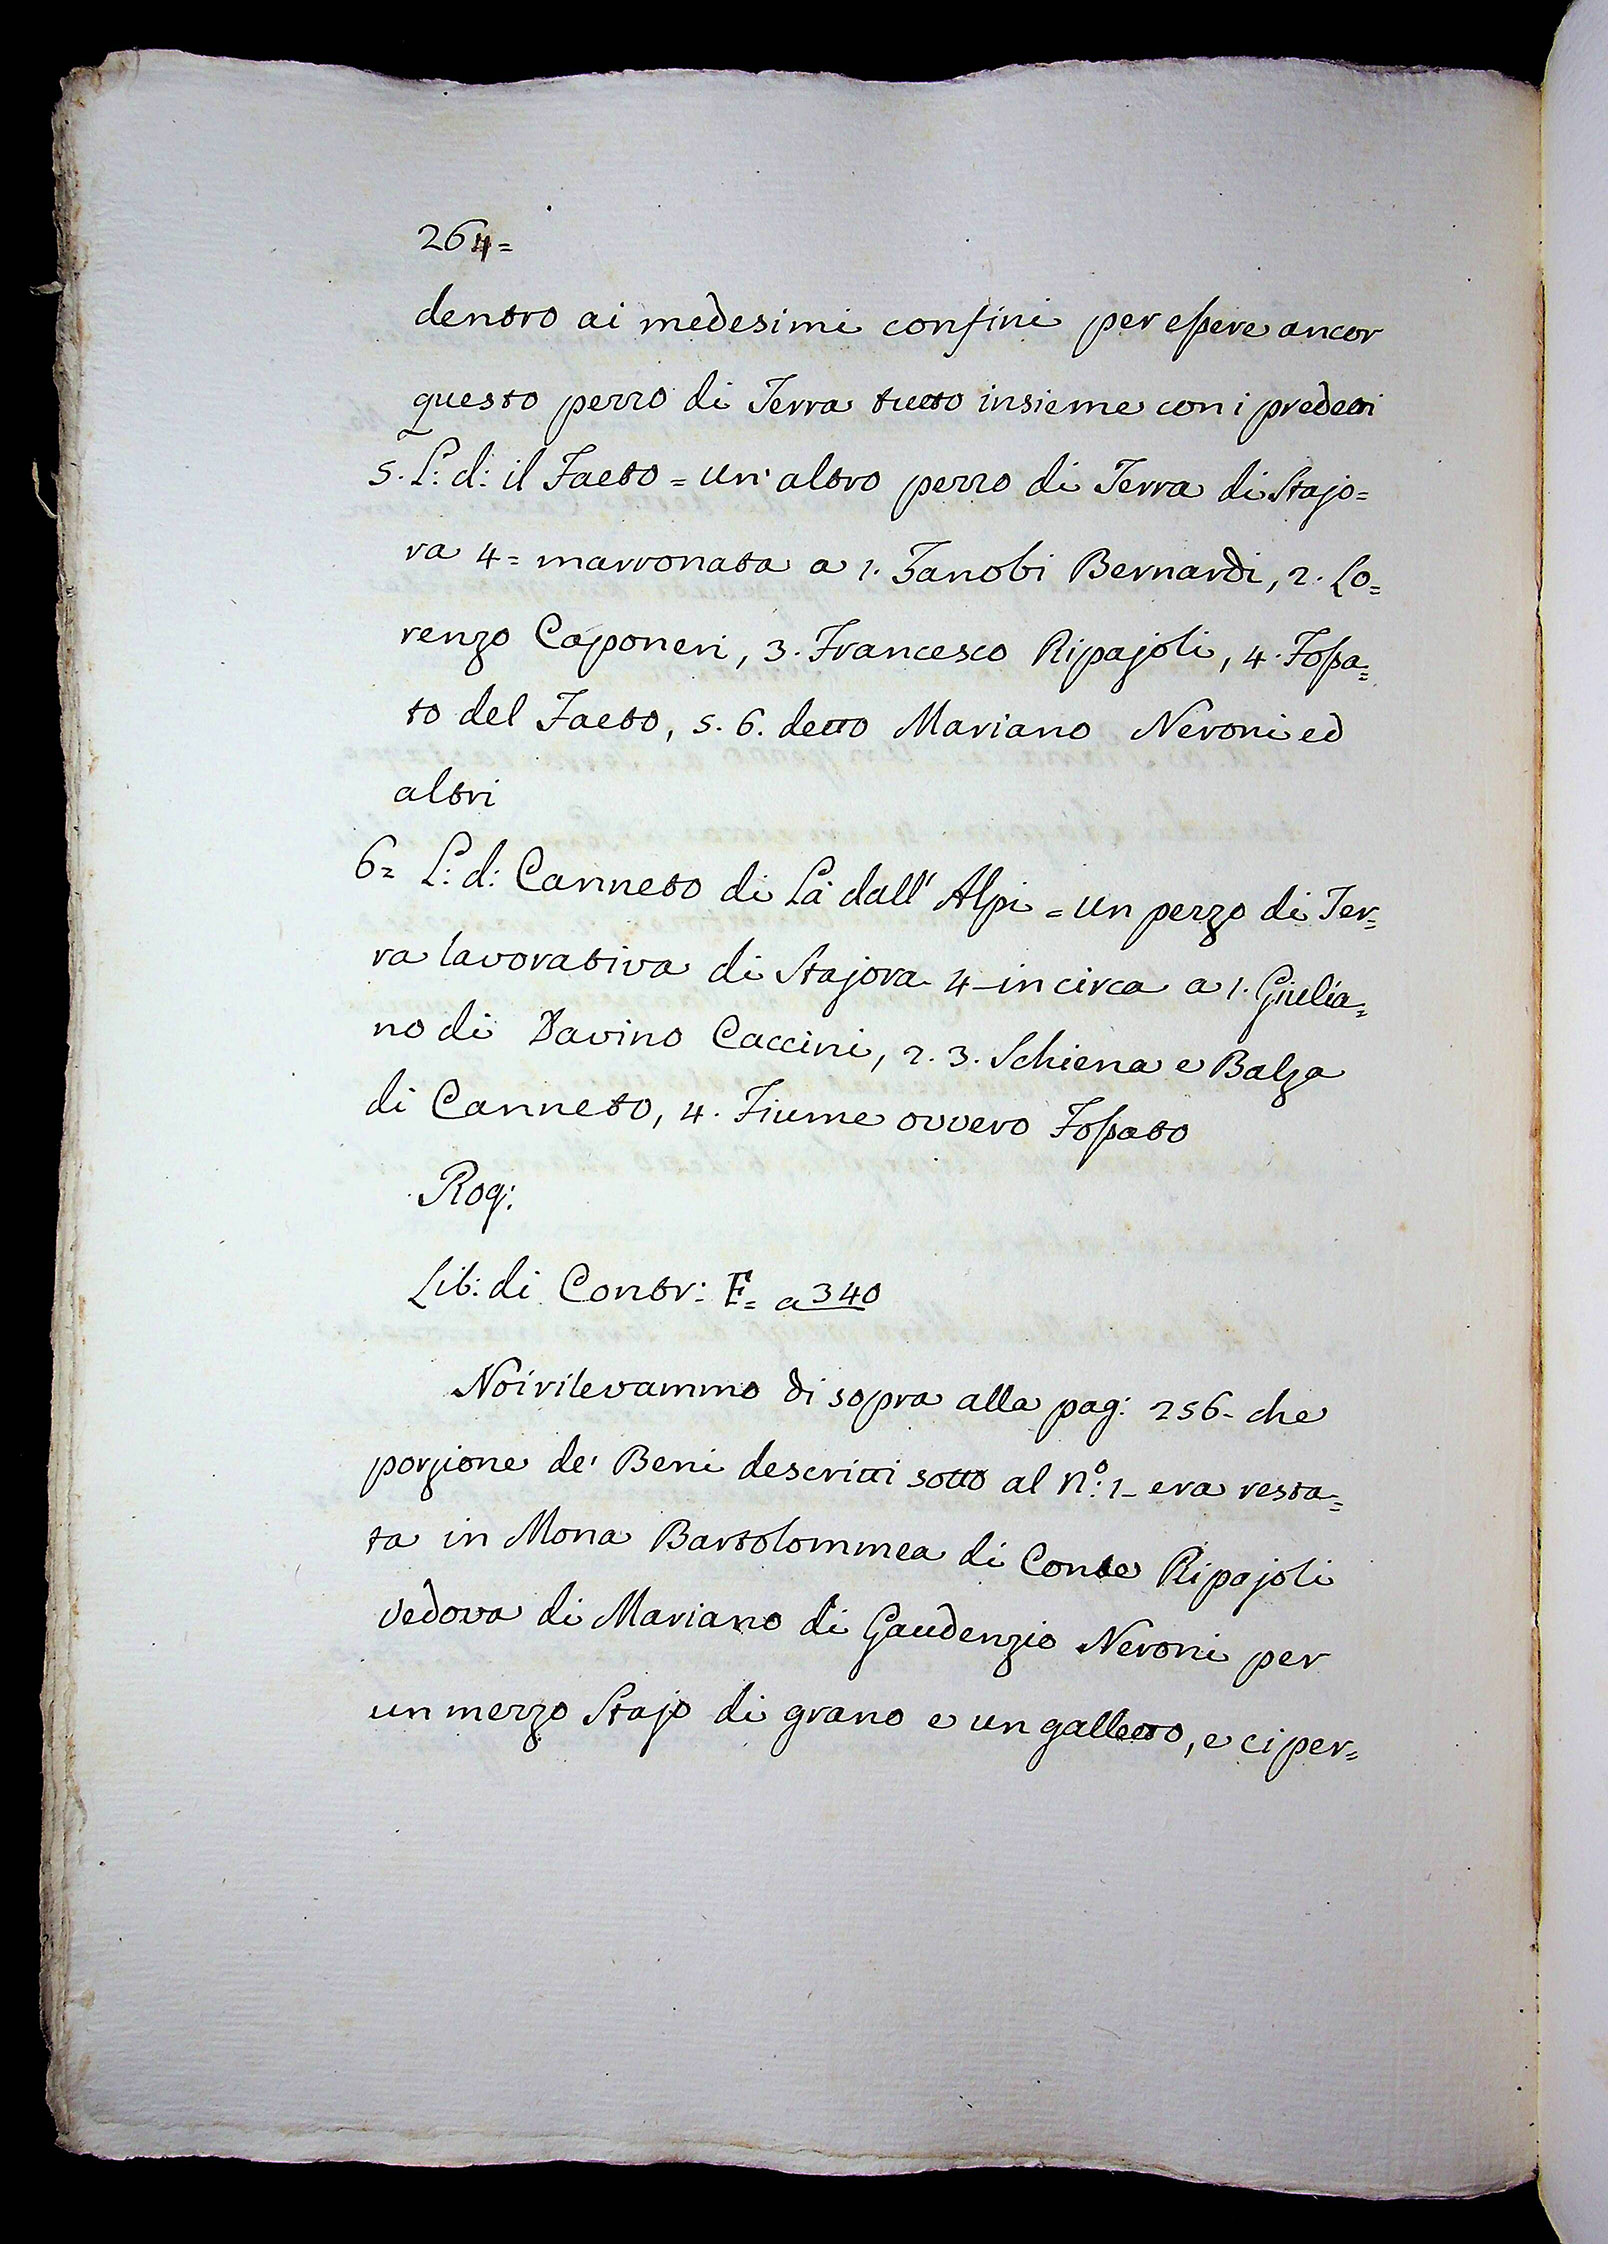 264=
dentro ai medesimi confini per essere ancor
questo pezzo di Terra tutto insieme con i predetti
5. L: d: il Faeto = un' altro pezzo di Terra di Stajo=
ra 4= marronata a 1. Zanobi Bernardi, 2. Lo=
renzo Caponeri, 3. Francesco Ripajoli, 4. Fossa=
to del Faeto, 5. 6. detto Mariano Neroni ed
altri
6= L: d: Canneto di Là dall' Alpi = un pezzo di Ter=
ra lavorativa di Stajora 4- in circa a 1. Giulia=
no di Davino Caccini, 2. 3. Schiena e Balza
di Canneto, 4. Fiume ovvero Fossato
Rog:
Lib: di Contr: F= a 340
Noi rilevammo di sopra alla pag: 256- che
porzione de' Beni descritti sotto al N.º 1- era resta=
ta in Mona Bartolommea di Conte Ripajoli
vedova di Mariano di Gaudenzio Neroni per
un mezzo Stajo di grano e un galletto, e ci per=